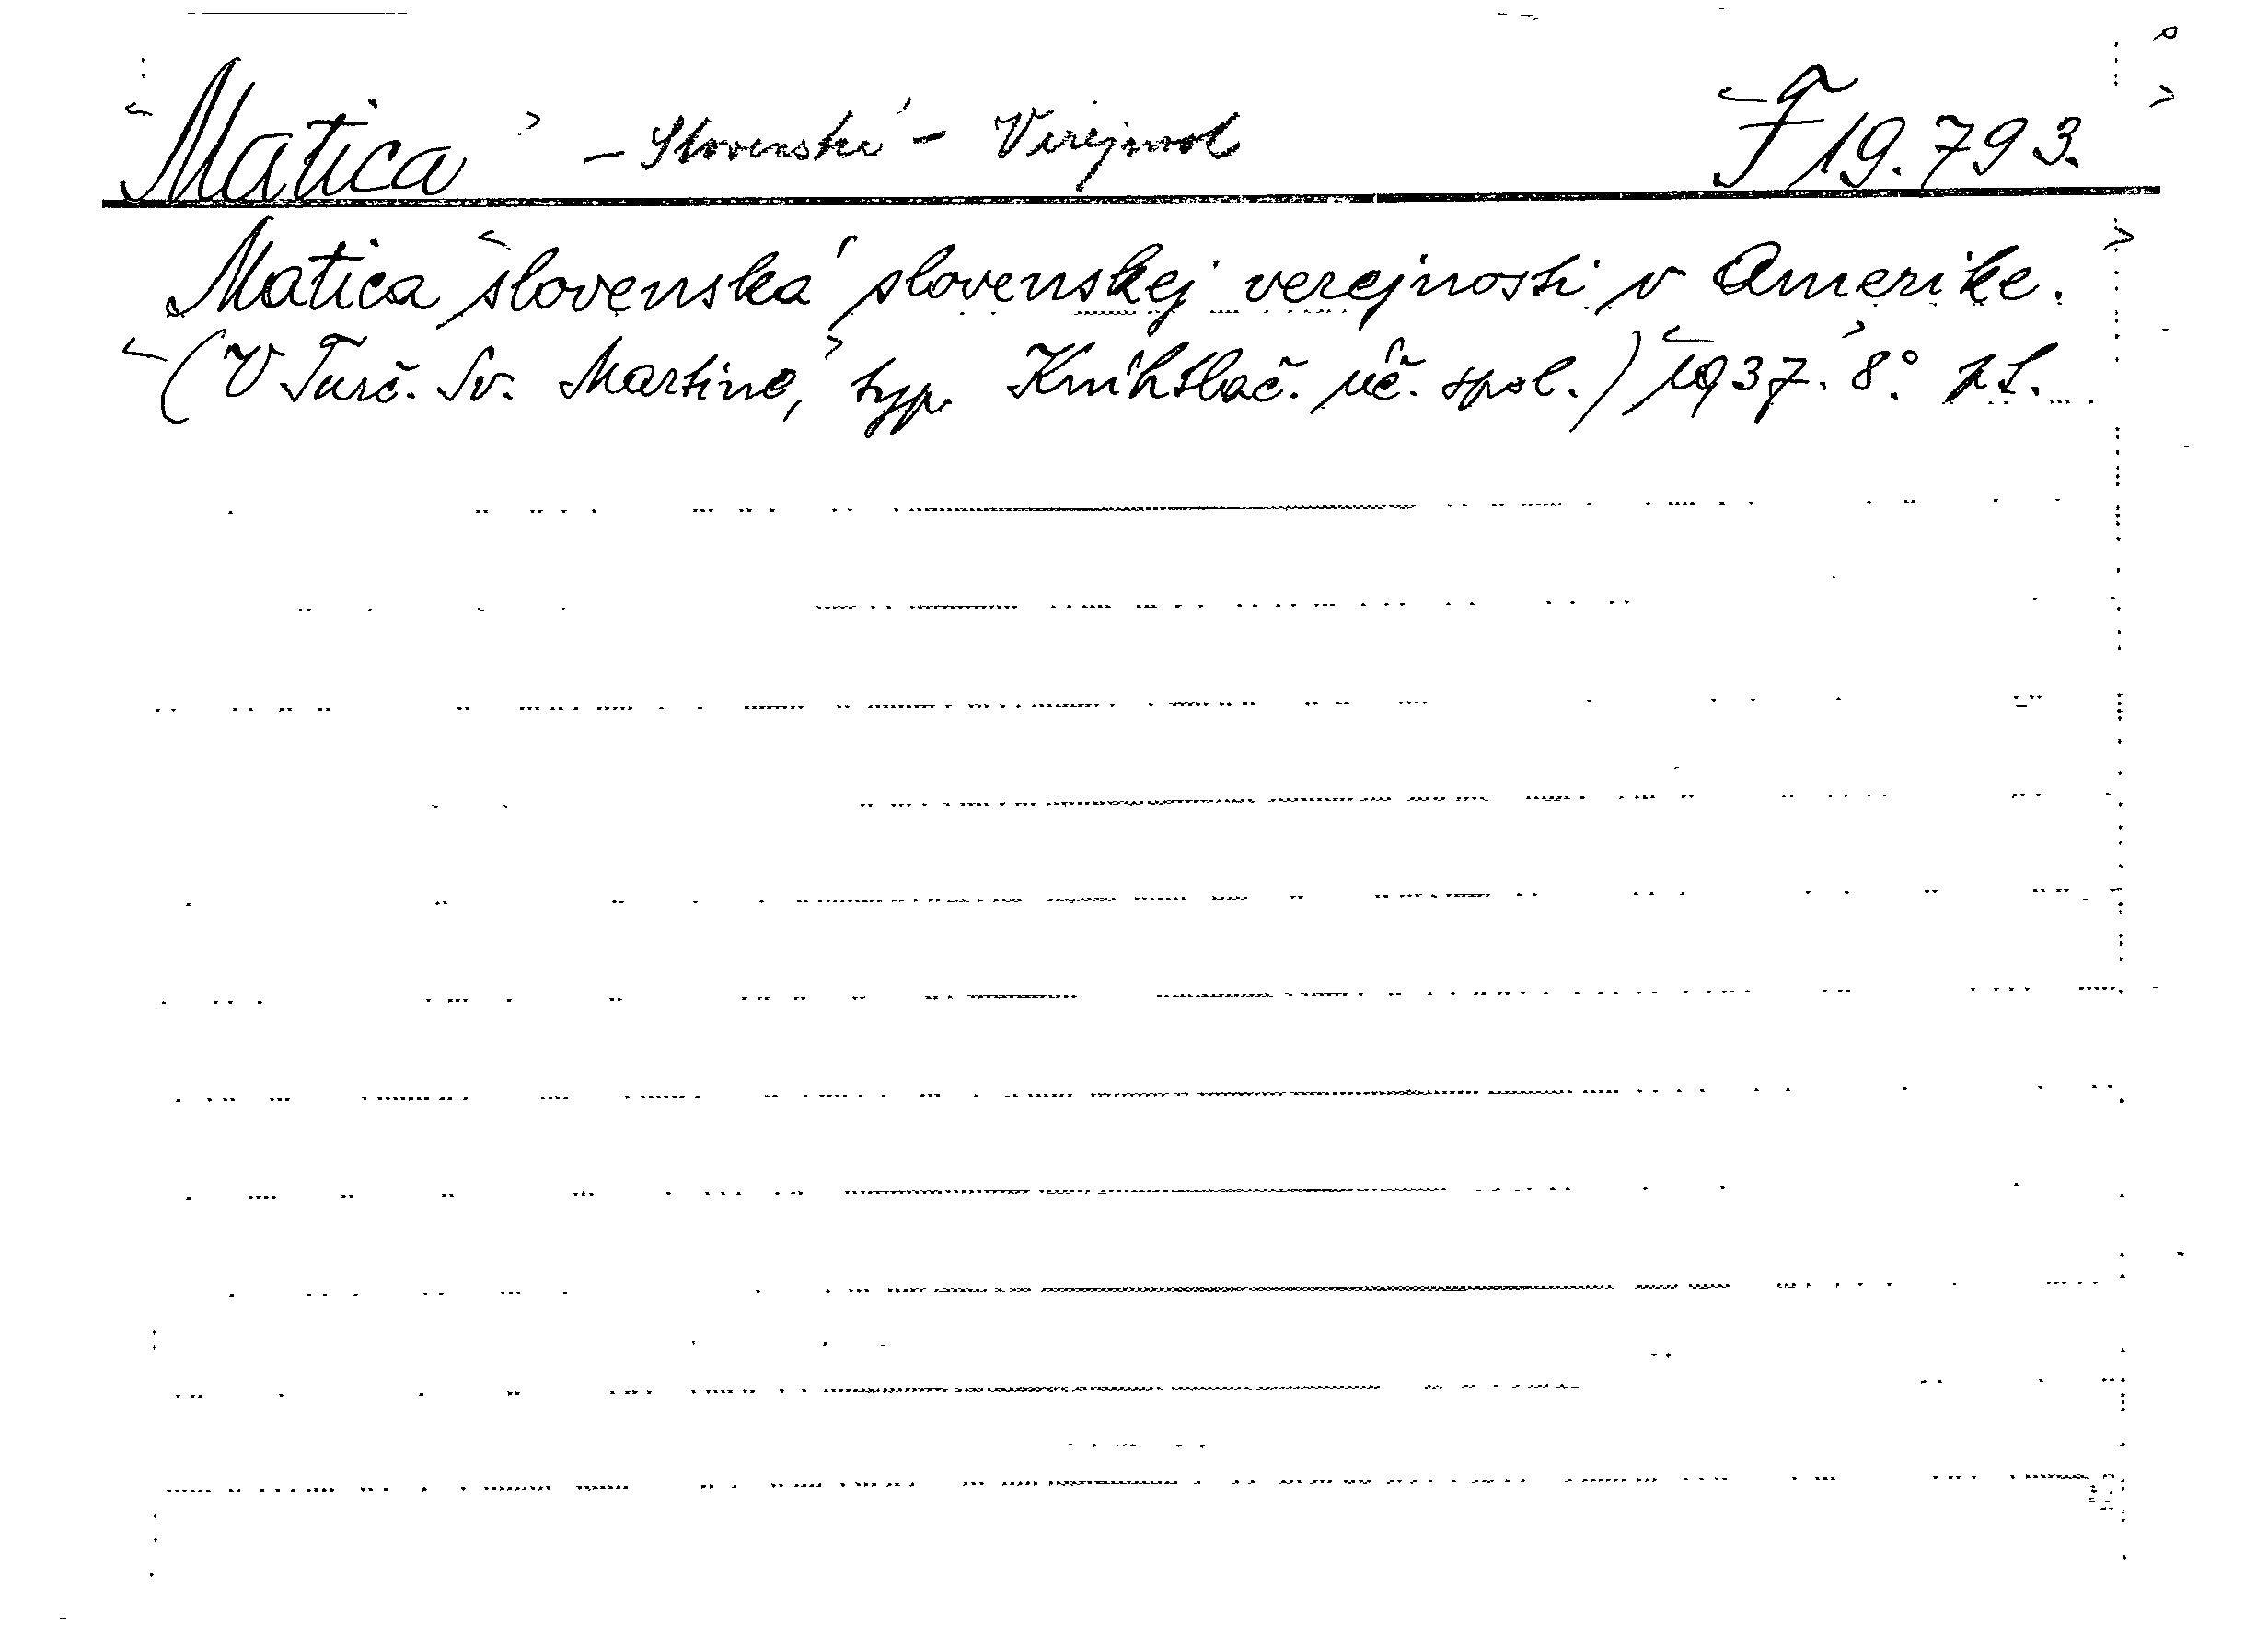 Matica - Slovenská - Verejnosť F 19.793.
Matica slovenská slovenskej verejnosti v Amerike.
(V Turč. Sv. Martine, typ. Kníhtlač. úč. spol.) 1937. 8°.